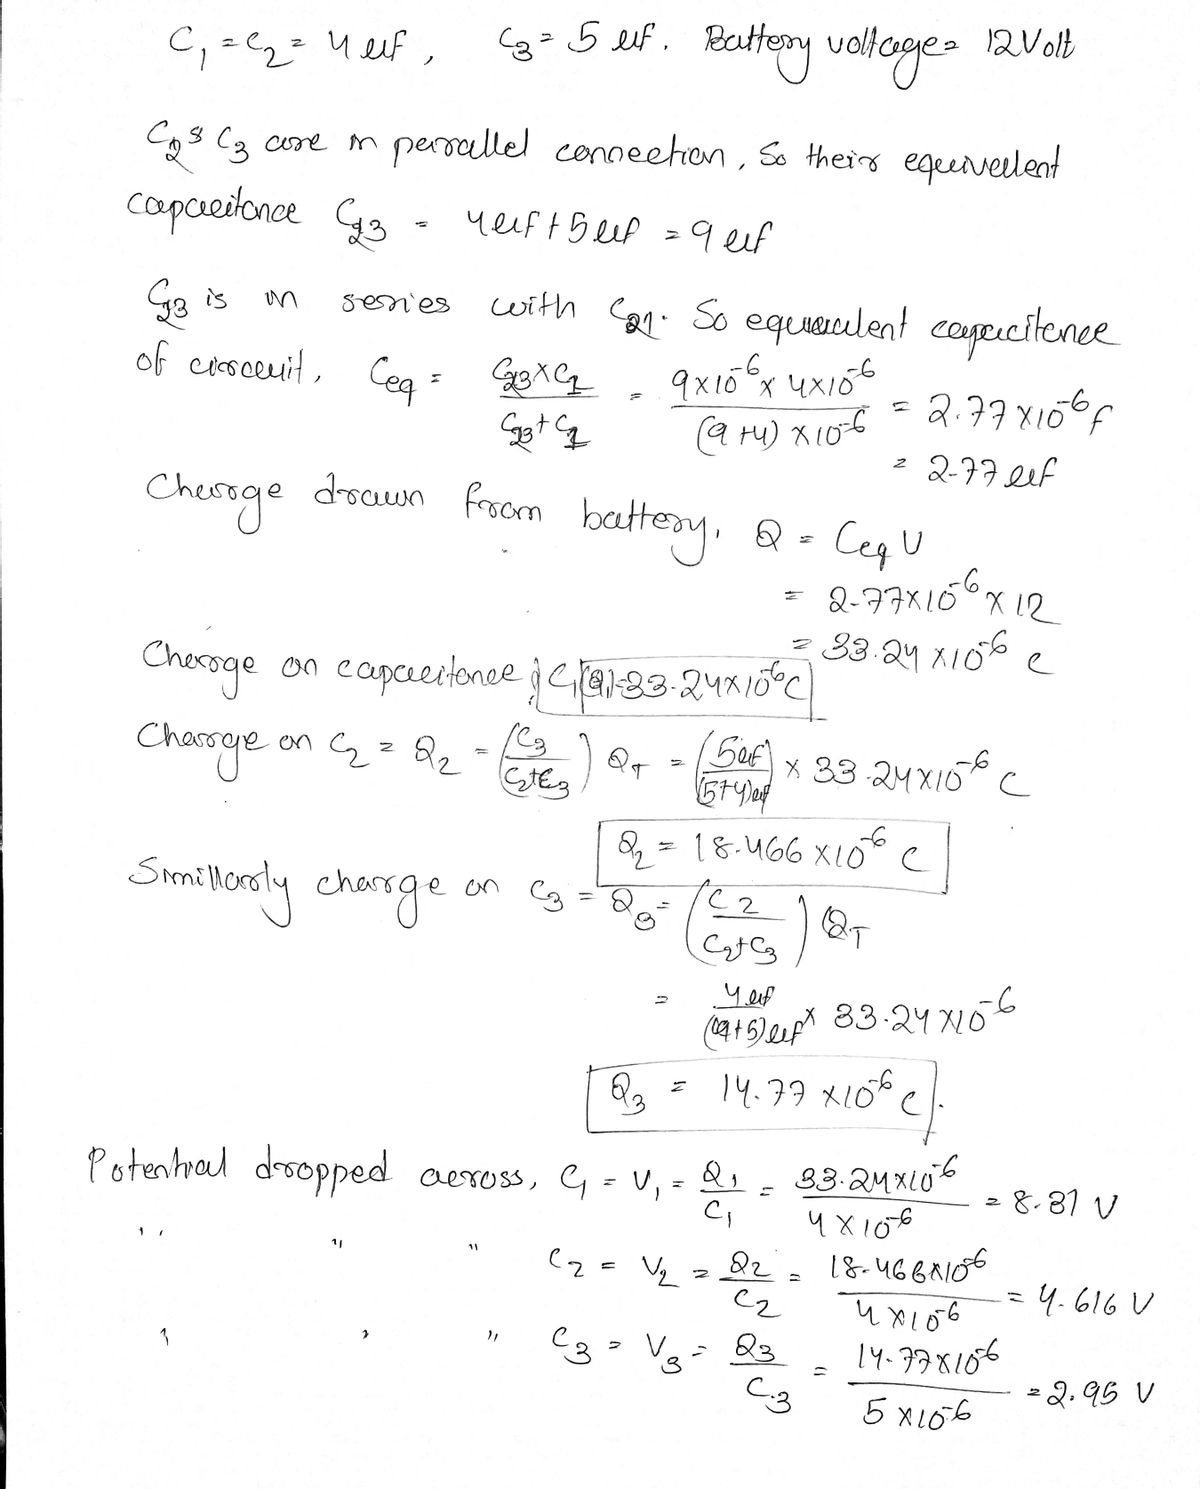 C₁ = C₂ = 4 μf, C₃ = 5 μf. Battery voltage = 12 Volt
C₂ & C₃ are in parallel connection, So their equivalent
capacitance C₂₃ = 4μf + 5μf = 9 μf
C₂₃ is in series with C₁. So equivalent capacitance
of circuit, Ceq = (C₂₃ × C₁)/(C₂₃ + C₁) = (9×10⁻⁶ × 4×10⁻⁶)/((9+4)×10⁻⁶) = 2.77×10⁻⁶ f
= 2.77 μf
Charge drawn from battery, Q = Ceq V
= 2.77×10⁻⁶ × 12
= 33.24 ×10⁻⁶ C
Charge on capacitance C₁ (Q₁) = 33.24×10⁻⁶ C
Charge on C₂ = Q₂ = (C₃/(C₂+C₃)) Q_T = (5μf/(5+4)μf) × 33.24×10⁻⁶ C
Q₂ = 18.466 ×10⁻⁶ C
Similarly charge on C₃ = Q₃ = (C₂/(C₂+C₃)) Q_T
= 4μf/(4+5)μf × 33.24 ×10⁻⁶
Q₃ = 14.77 ×10⁻⁶ C.
Potential dropped across, C₁ = V₁ = Q₁/C₁ = (33.24×10⁻⁶)/(4×10⁻⁶) = 8.31 V
" " " C₂ = V₂ = Q₂/C₂ = (18.466×10⁻⁶)/(4×10⁻⁶) = 4.616 V
" " " C₃ = V₃ = Q₃/C₃ = (14.77×10⁻⁶)/(5×10⁻⁶) = 2.95 V